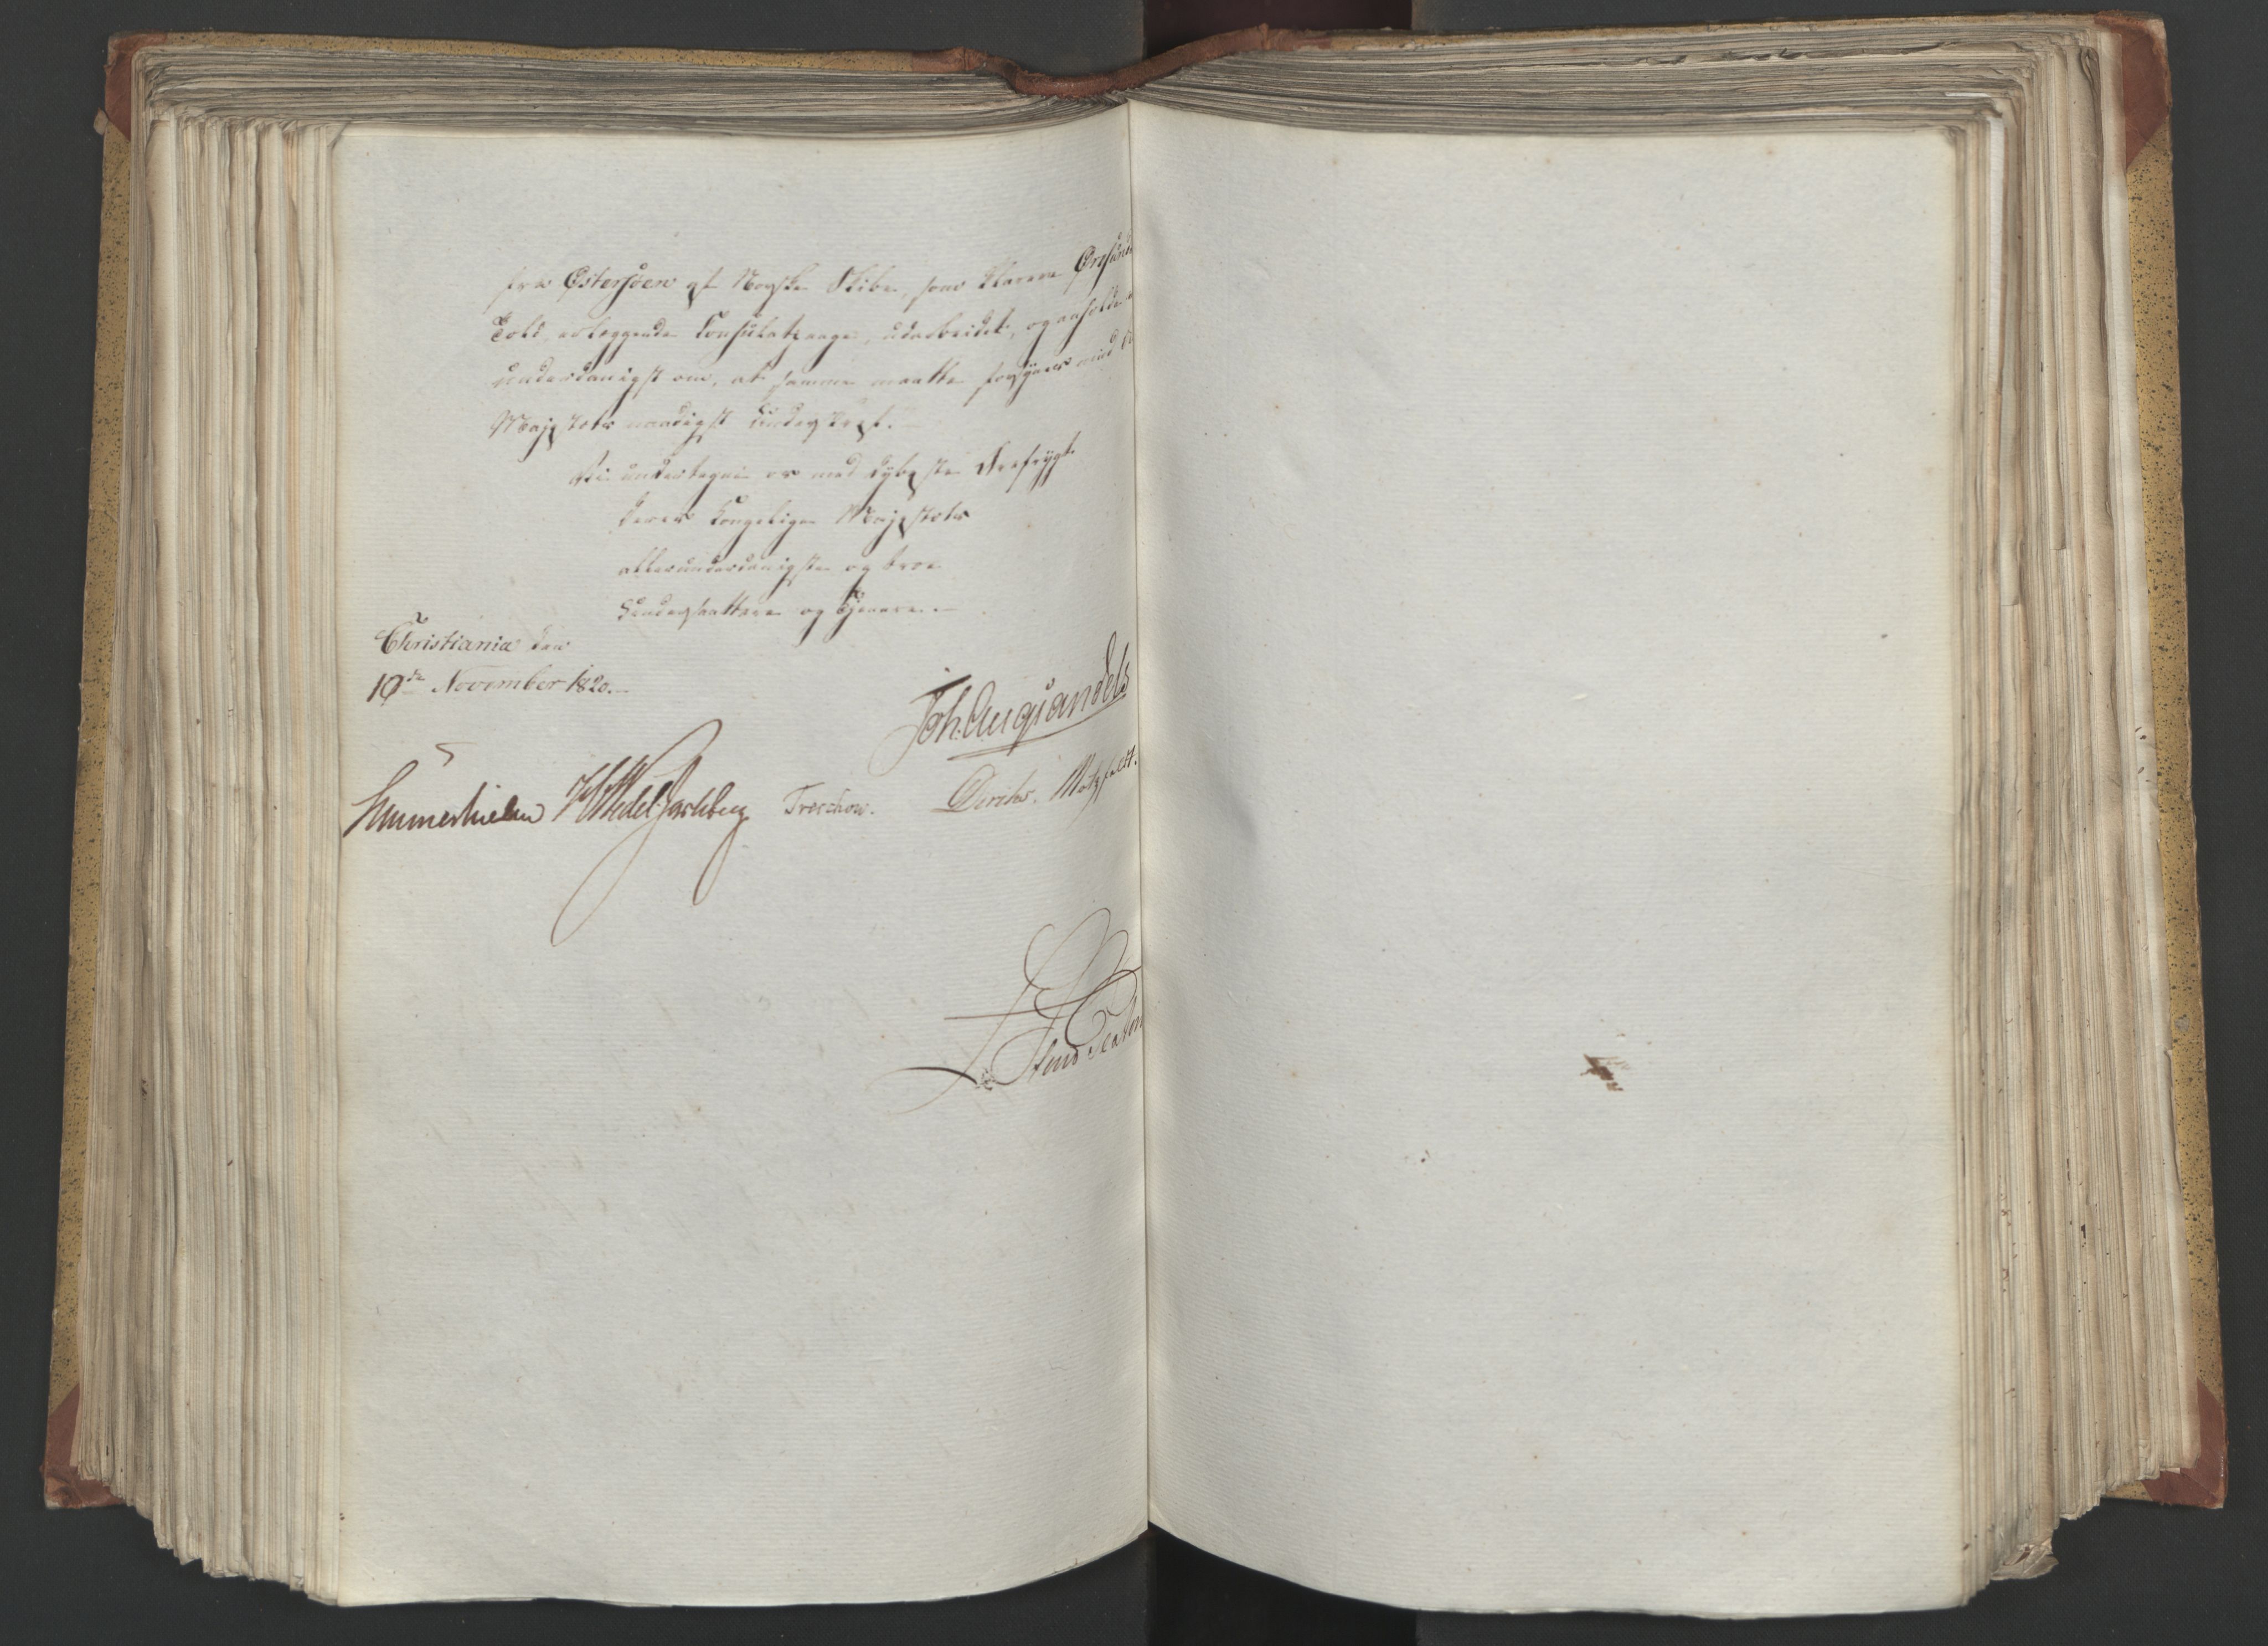 fra Østersøen af Norske Skibe, som klarere Øresunds
Told, erlæggende Consulatpenge, udarbeidet, og anholde
underdanigst om, at samme maatte forsynes med
Majestæts naadigst Underskrift.
Vi undertegne os med dybeste Ærefrygt
Deres Kongelige Majestæts
allerunderdanigste og troe
Undersaattere og Tjenere.
Christiania den
10de November 1820.
Joh. Aug. Sandels
Sommerhielm H Wedel Jarlsberg Treschow. Diriks. Motzfeldt.